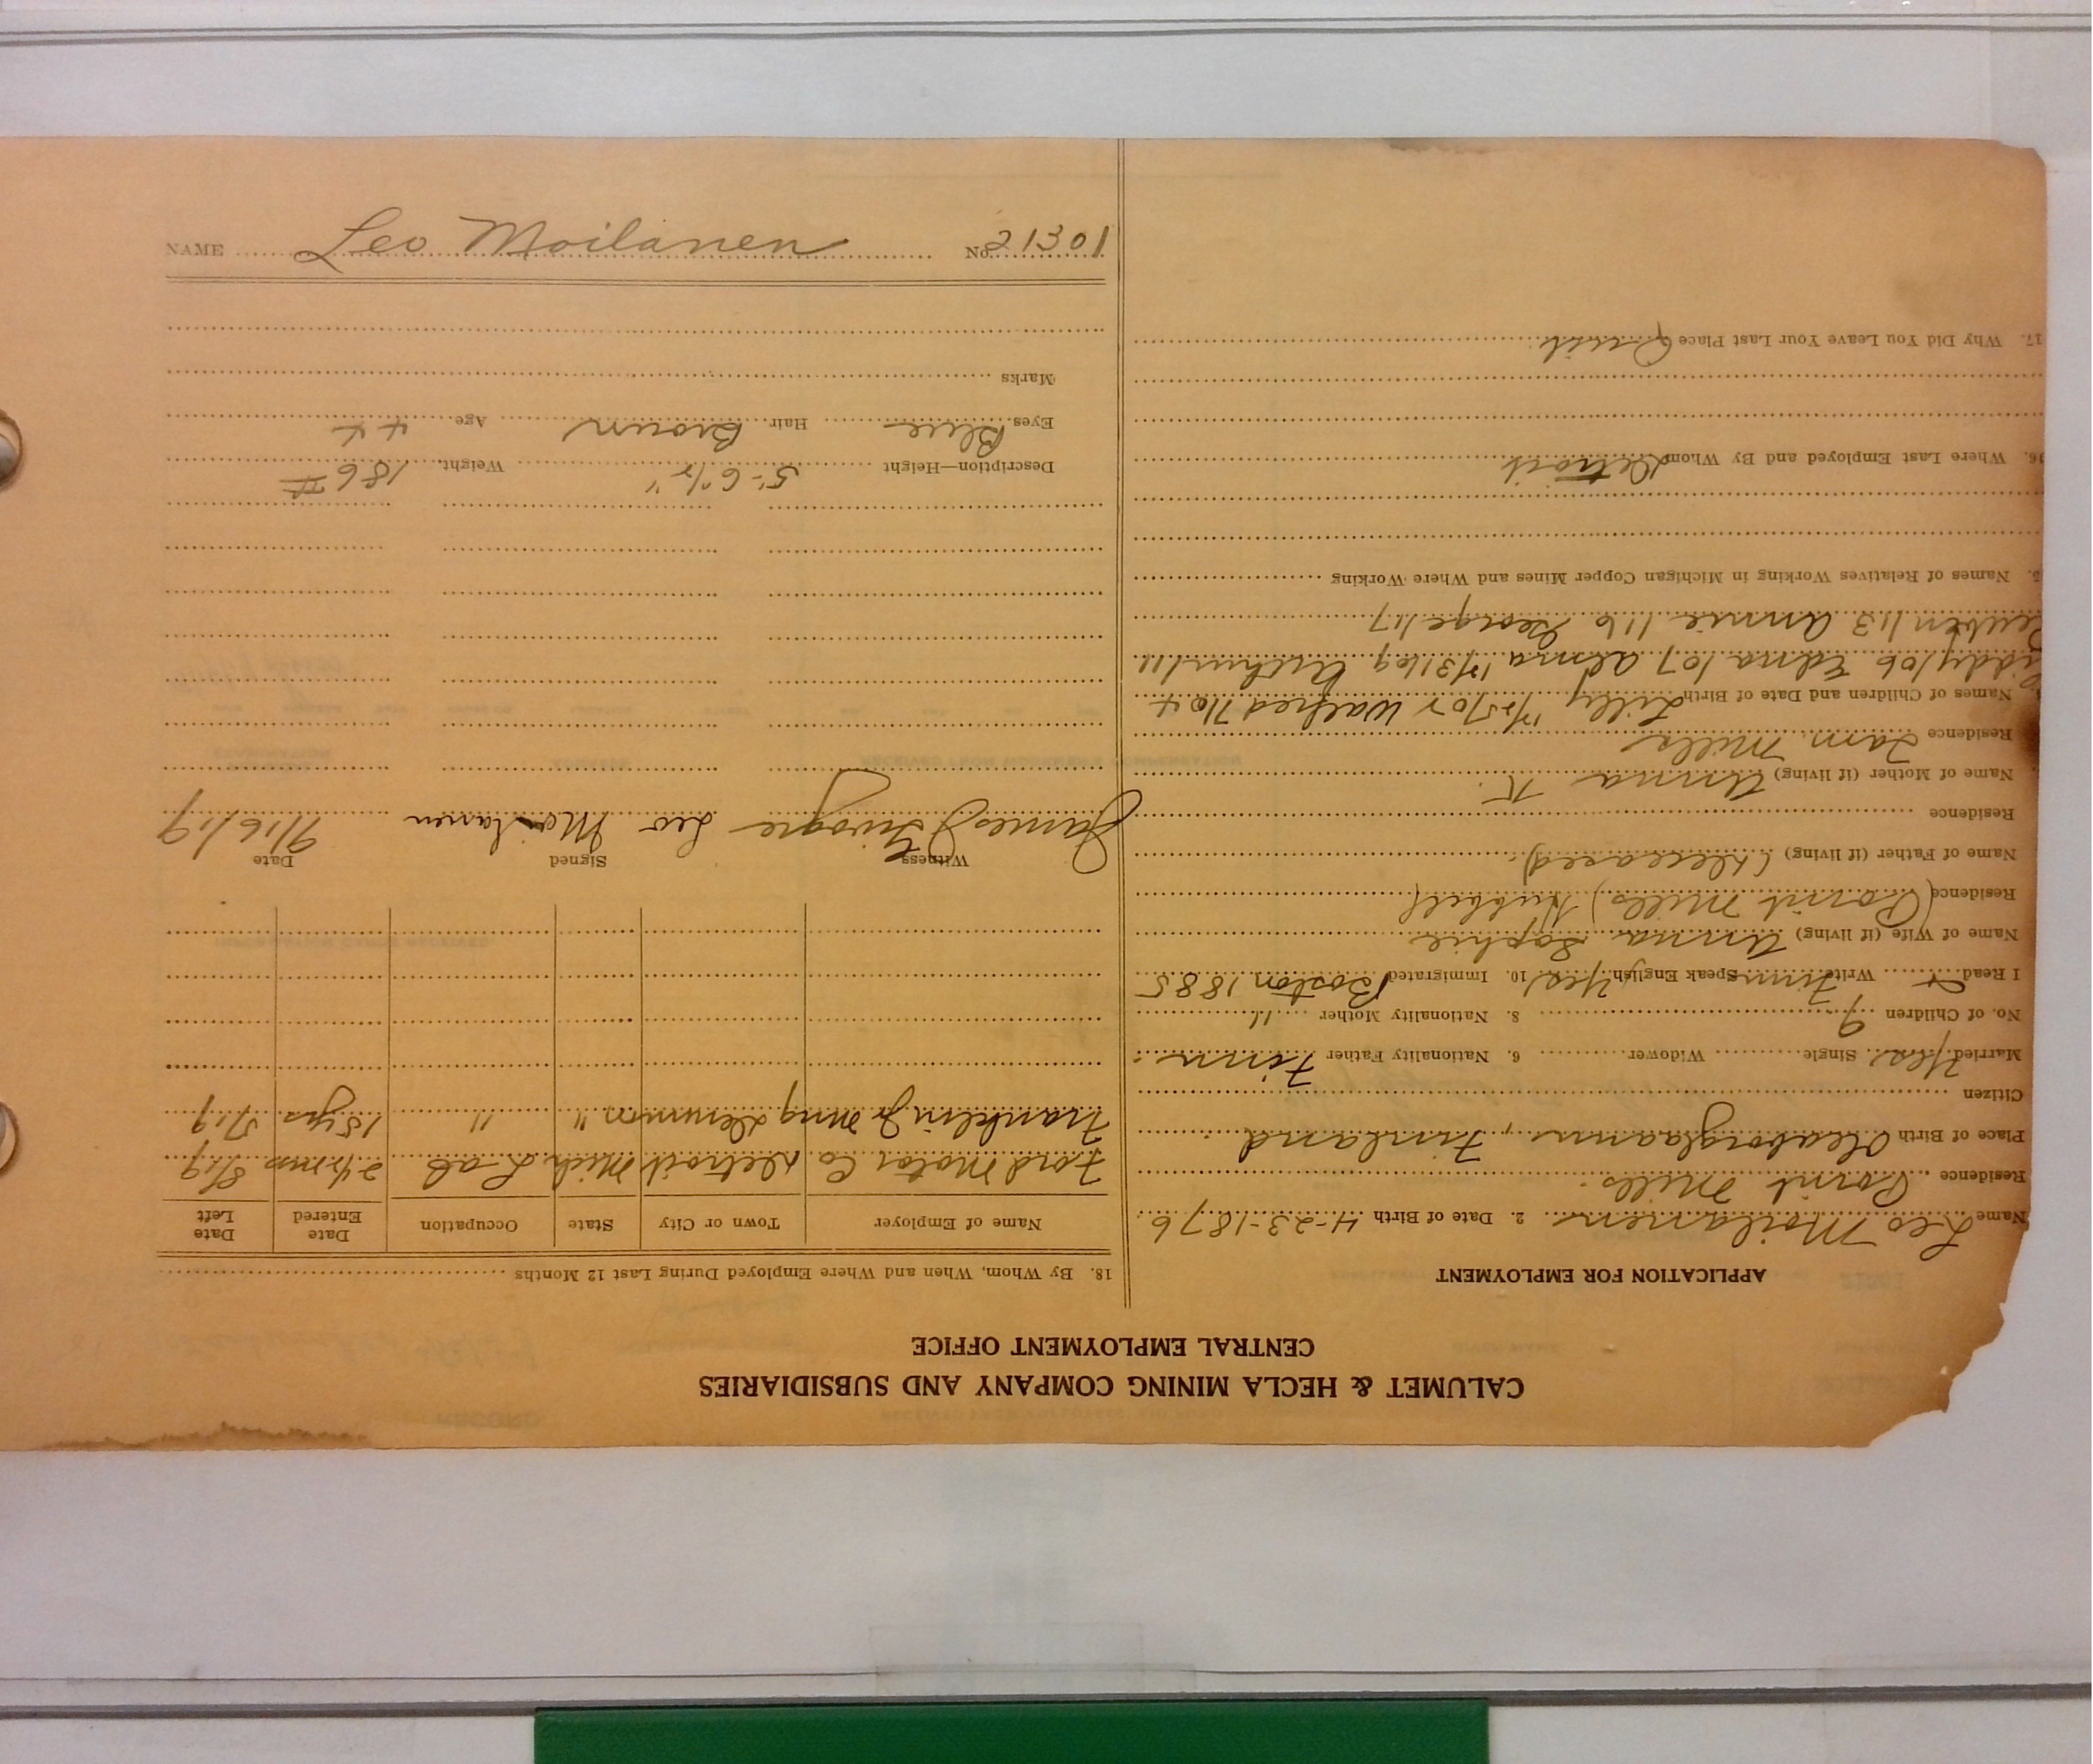 CALUMET & HECLA MINING COMPANY AND SUBSIDIARIES
CENTRAL EMPLOYMENT OFFICE
APPLICATION FOR EMPLOYMENT
Name Leo Moilanen 2. Date of Birth 4-23-1876
Residence Point Mills.
Place of Birth Uleaborglaan, Finland
Citizen
Married Yes Single Widower 6. Nationality Father Finn
No. of Children 9 8. Nationality Mother 11
I Read Write Finn Speak English Yes 10. Immigrated Boston 1885
Name of Wife (if living) Anna Sophie
Residence (Point Mills) Hubbell
Name of Father (if living) (deceased)
Residence
Name of Mother (if living) Anna K.
Residence Tam. Mills
Names of Children and Date of Birth Lilly Walfred 7/04
/06 Edna /07 Alma 12/31/09 Arthur /11
Reuben /13 Annie 1/16 George /17
Names of Relatives Working in Michigan Copper Mines and Where Working
16. Where Last Employed and By Whom Detroit
17. Why Did You Leave Your Last Place Quit
18. By Whom, When and Where Employed During Last 12 Months
Name of Employer Town or City State Occupation Date Entered Date Left
Ford Motor Co Detroit Mich Lab 2 1/2 mos 8/19
Franklin Jr Mng Demmon " " 15 yrs 5/19
Witness Signed Date
James Leo Moilanen 9/16/19
Description—Height 5'-6 1/2" Weight 186 #
Eyes Blue Hair Brown Age 44
Marks
NAME Leo Moilanen No. 21301